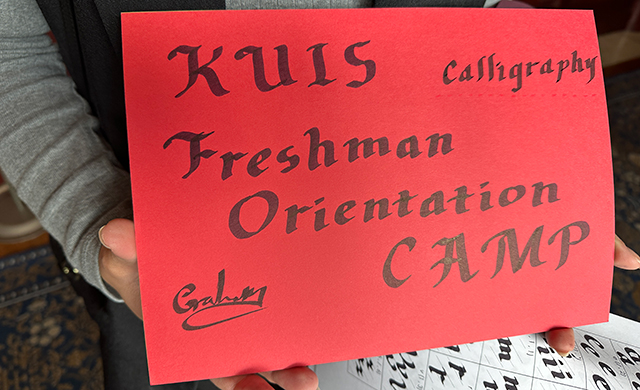 KUIS
Calligraphy
Freshman
Orientation
CAMP
Graham